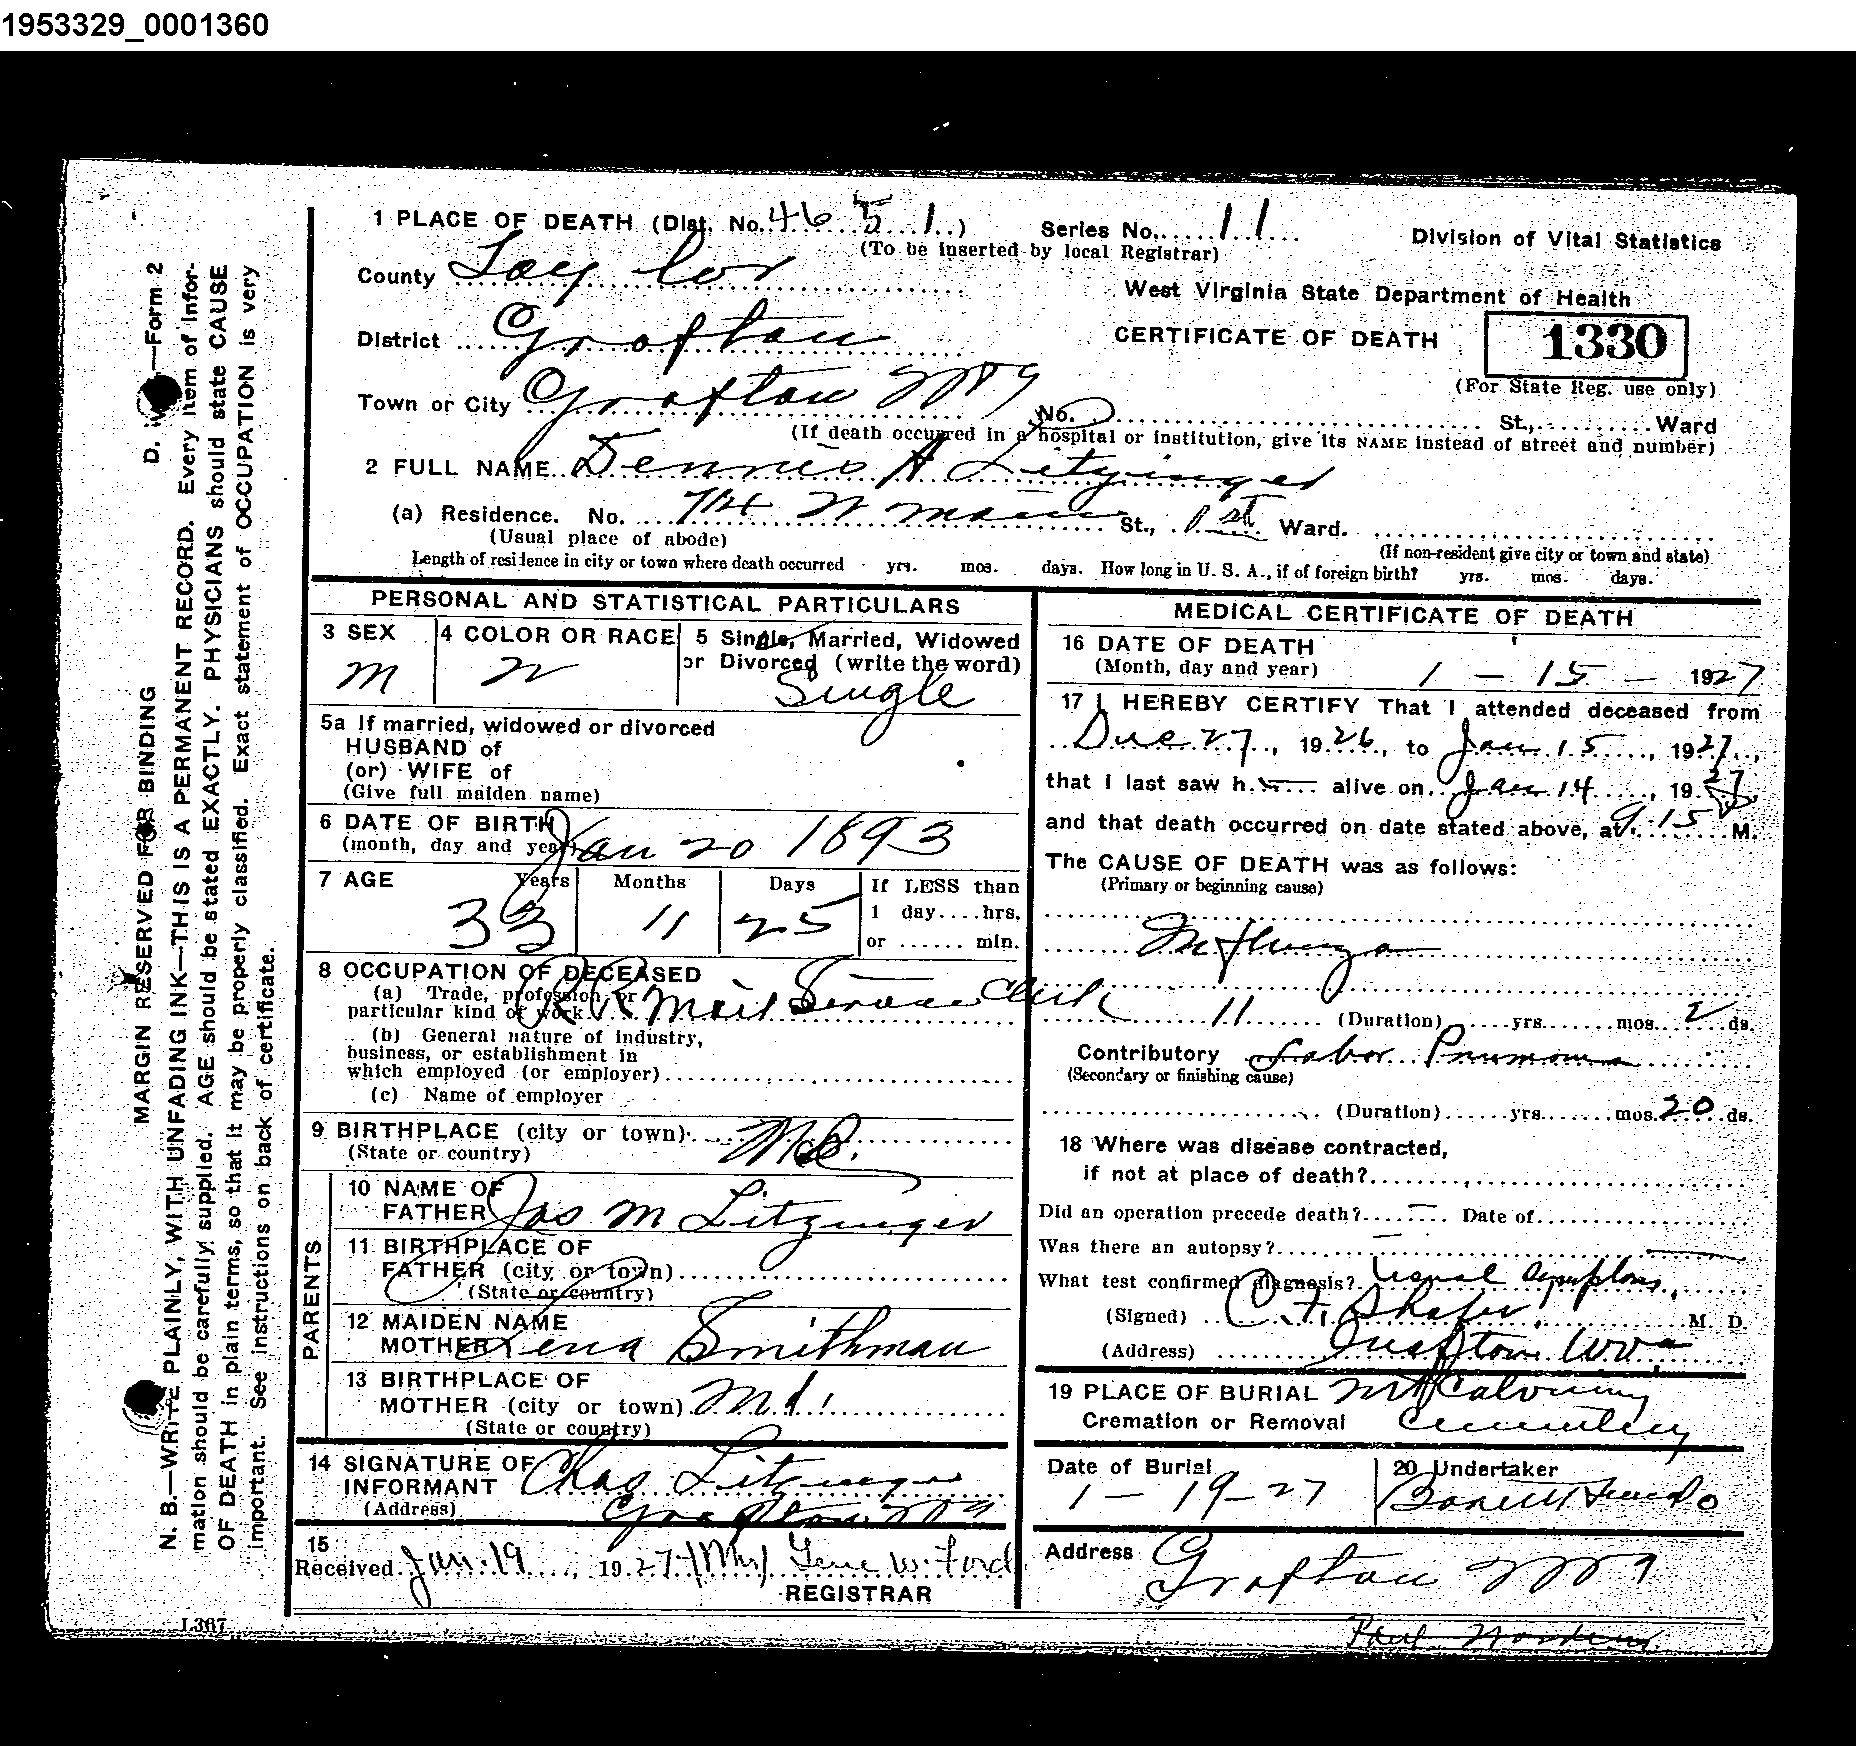 1953329_0001360
1 PLACE OF DEATH (Dist. No. 46 5 1) Series No. 11
(To be inserted by local Registrar)
Division of Vital Statistics
County Taylor
West Virginia State Department of Health
District Grafton
CERTIFICATE OF DEATH 1330
(For State Reg. use only)
Town or City Grafton W Va No. St., Ward
(If death occurred in a hospital or institution, give its NAME instead of street and number)
2 FULL NAME Dennis A Litzinger
(a) Residence. No. 714 W Main St., 1st Ward.
(Usual place of abode) (If non-resident give city or town and state)
Length of residence in city or town where death occurred yrs. mos. days. How long in U. S. A., if of foreign birth? yrs. mos. days.
PERSONAL AND STATISTICAL PARTICULARS
3 SEX
M
4 COLOR OR RACE
W
5 Single, Married, Widowed
or Divorced (write the word)
Single
5a If married, widowed or divorced
HUSBAND of
(or) WIFE of
(Give full maiden name)
6 DATE OF BIRTH
(month, day and year) Jan 20 1893
7 AGE Years Months Days If LESS than
1 day....hrs.
or ...... min.
33 11 25
8 OCCUPATION OF DECEASED
(a) Trade, profession, or
particular kind of work R R Mail Service Clerk
(b) General nature of industry,
business, or establishment in
which employed (or employer)
(c) Name of employer
9 BIRTHPLACE (city or town) Md.
(State or country)
PARENTS
10 NAME OF
FATHER Jas M Litzinger
11 BIRTHPLACE OF
FATHER (city or town)
(State or country)
12 MAIDEN NAME
MOTHER Lena Smithman
13 BIRTHPLACE OF
MOTHER (city or town) Md.
(State or country)
14 SIGNATURE OF
INFORMANT Chas Litzinger
(Address) Grafton W Va
15
Received Jan. 19, 1927 (Mrs) Gene W. Ford
REGISTRAR
MEDICAL CERTIFICATE OF DEATH
16 DATE OF DEATH
(Month, day and year) 1 - 15 - 1927
17 I HEREBY CERTIFY That I attended deceased from
Dec 27, 1926, to Jan 15, 1927,
that I last saw h alive on Jan 14, 1927,
and that death occurred on date stated above, at 9:15 M.
The CAUSE OF DEATH was as follows:
(Primary or beginning cause)
Influenza
11 (Duration) yrs. mos. 2 ds.
Contributory Lobar Pneumonia
(Secondary or finishing cause)
(Duration) yrs. mos. 20 ds.
18 Where was disease contracted,
if not at place of death?
Did an operation precede death? — Date of
Was there an autopsy? —
What test confirmed diagnosis? usual symptoms
(Signed) C. F. Shafer M. D.
(Address) Grafton W Va
19 PLACE OF BURIAL Mt Calvary
Cremation or Removal Cemetery
Date of Burial
1 - 19 - 27
20 Undertaker
Address Grafton W Va
MARGIN RESERVED FOR BINDING D. —Form 2
N. B.—WRITE PLAINLY, WITH UNFADING INK—THIS IS A PERMANENT RECORD. Every item of infor-
mation should be carefully supplied. AGE should be stated EXACTLY. PHYSICIANS should state CAUSE
OF DEATH in plain terms, so that it may be properly classified. Exact statement of OCCUPATION is very
important. See instructions on back of certificate.
L367